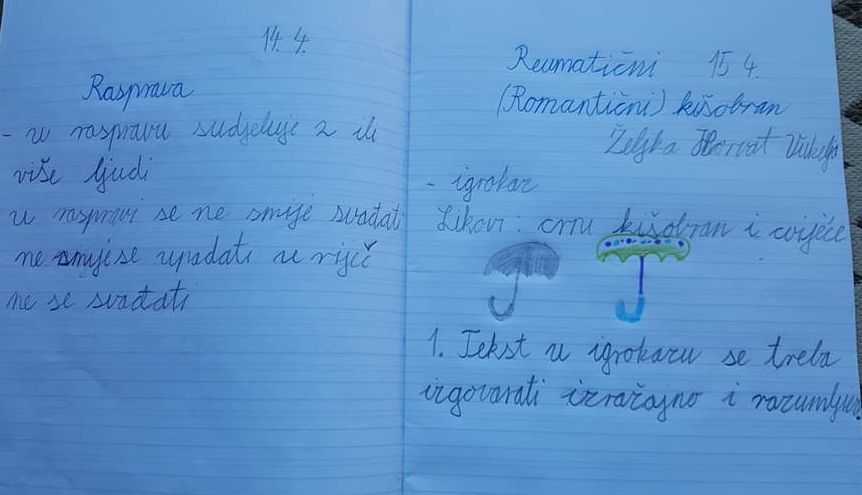 14. 4.
Rasprava
- u raspravi sudjeluje 2 ili
više ljudi
u raspravi se ne smije svađati
ne smije se upadati u riječ
ne se svađati
Reumatični 15 4.
(Romantični) kišobran
Željka Horvat Vukelja
- igrokaz
Likovi: crni kišobran i cvijeće
1. Tekst u igrokazu se treba
izgovarati izražajno i razumljivo.